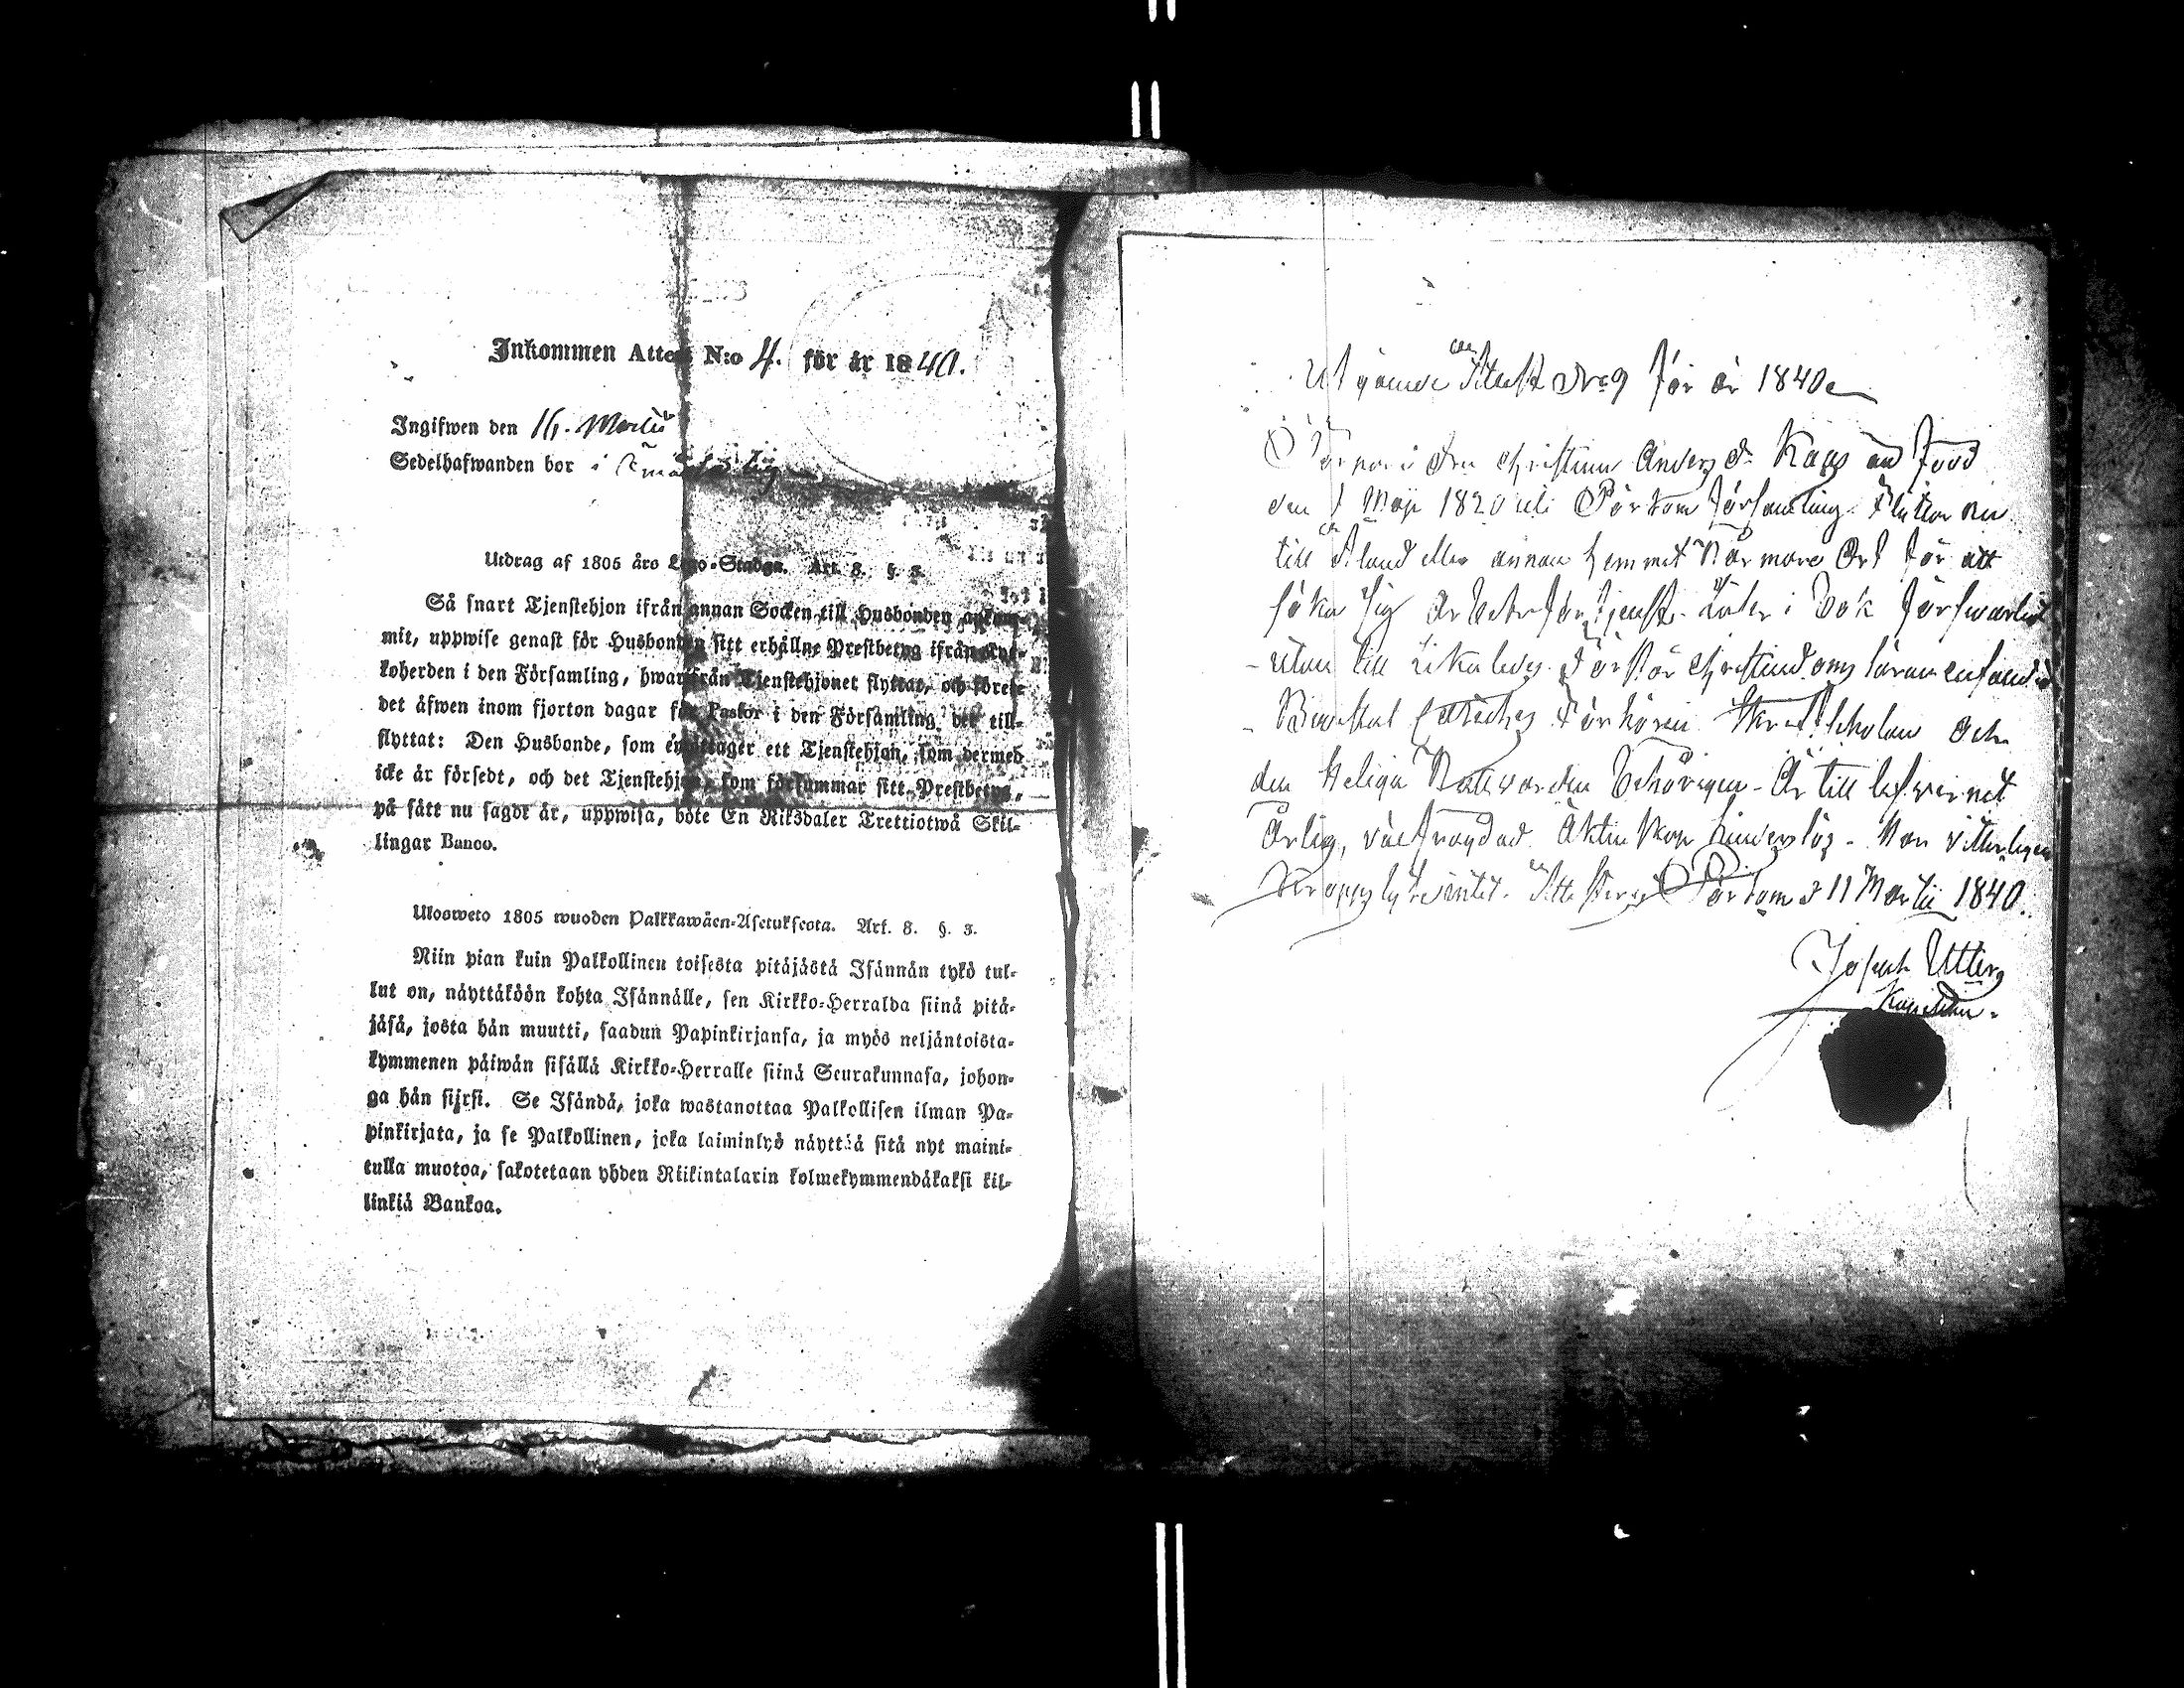 Inkommen Attest N:o 4. för år 1840.
Ingifwen den 16. Martii
Sedelhafwanden bor i
Utdrag af 1805 års Lego-Stadga. Art. 8. §. 3.
Så snart Tjenstehjon ifrån annan Socken till Husbonden ankom-
mit, uppwise genast för Husbonden sitt erhållne Prestbetyg ifrån Kyr-
koherden i den Församling, hwarifrån Tjenstehjonet flyttat, och förete
det äfwen inom fjorton dagar för Pastor i den Församling det till-
flyttat: Den Husbonde, som emottager ett Tjenstehjon, som dermed
icke är försedt, och det Tjenstehjon, som försummar sitt Prestbetyg,
på sätt nu sagdt är, uppwisa, böte En Riksdaler Trettiotwå Skil-
lingar Banco.
Ulosweto 1805 wuoden Palkkawäen-Asetuksesta. Art. 8. §. 3.
Niin pian kuin Palkollinen toisesta pitäjästä Isännän tykö tul-
lut on, näyttäköön kohta Isännälle, sen Kirkko-Herralda siinä pitä-
jäsä, josta hän muutti, saadun Papinkirjansa, ja myös neljäntoista-
kymmenen päiwän sisällä Kirkko-Herralle siinä Seurakunnasa, johon-
ga hän siirsi. Se Isändä, joka wastanottaa Palkollisen ilman Pa-
pinkirjata, ja se Palkollinen, joka laiminlyö näyttää sitä nyt maini-
tulla muotoa, sakotetaan yhden Riikintalarin kolmekymmendäkaksi kil-
linkiä Bankoa.
Utgående Attest No 9 för år 1840
Christina Anders dr Kaas än född
den Maji 1820 uti Pörtom församling. Flyttar nu
till Åland eller annan hemmet närmare Ort för att
söka sig arbetsförtjenst. Läser i bok försvarligt
utan till lika ledes. Förstår Christendoms läran enfaldigt
Bewistat Catechis Förhören Skriftskolan och
den Heliga Nattvarden behörigen. Är till lefvernet
Ärlig, väl frägdad. Äktenskaps hinderslös. Har vitterligen
kropps lyte intet. Attesterar Pörtom d 11 Martii 1840.
Joseph
Kapellan.